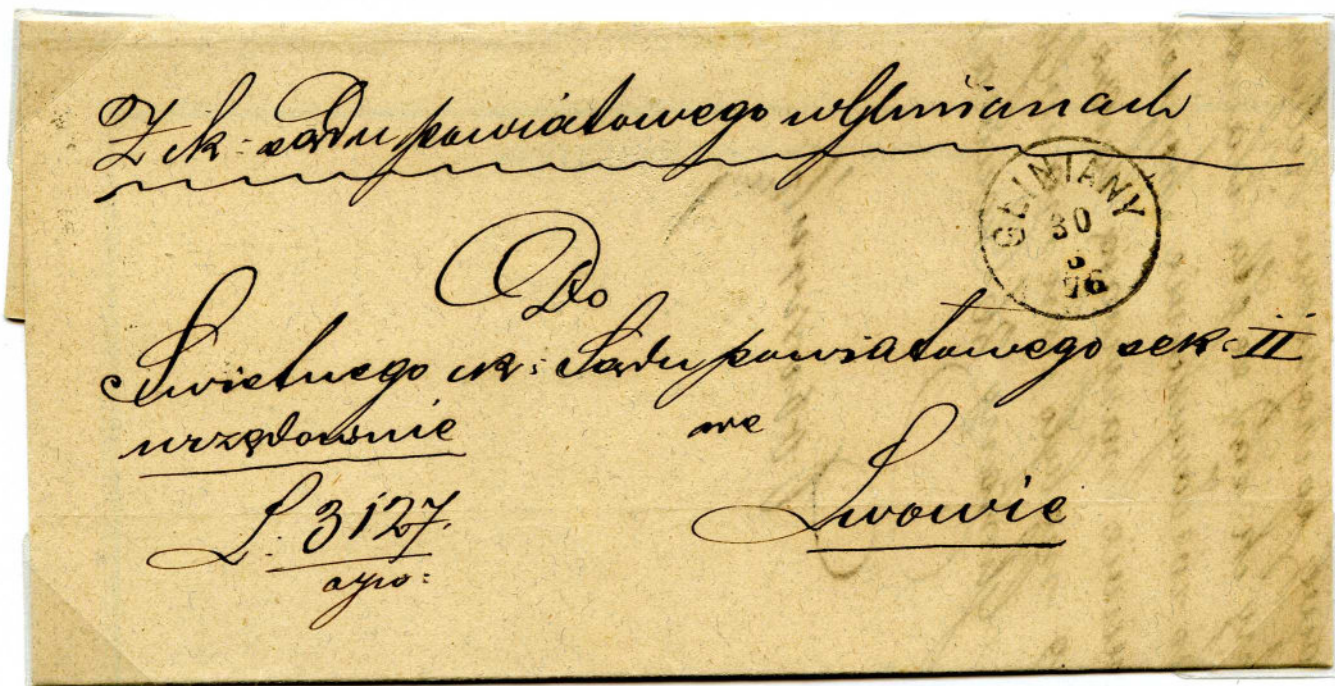 Z ck: sądu powiatowego w Glinianach
GLINIANY
30
76
Do
Świetnego ck: Sądu powiatowego sek: II
urzędownie
we
L. 3127.
Lwowie